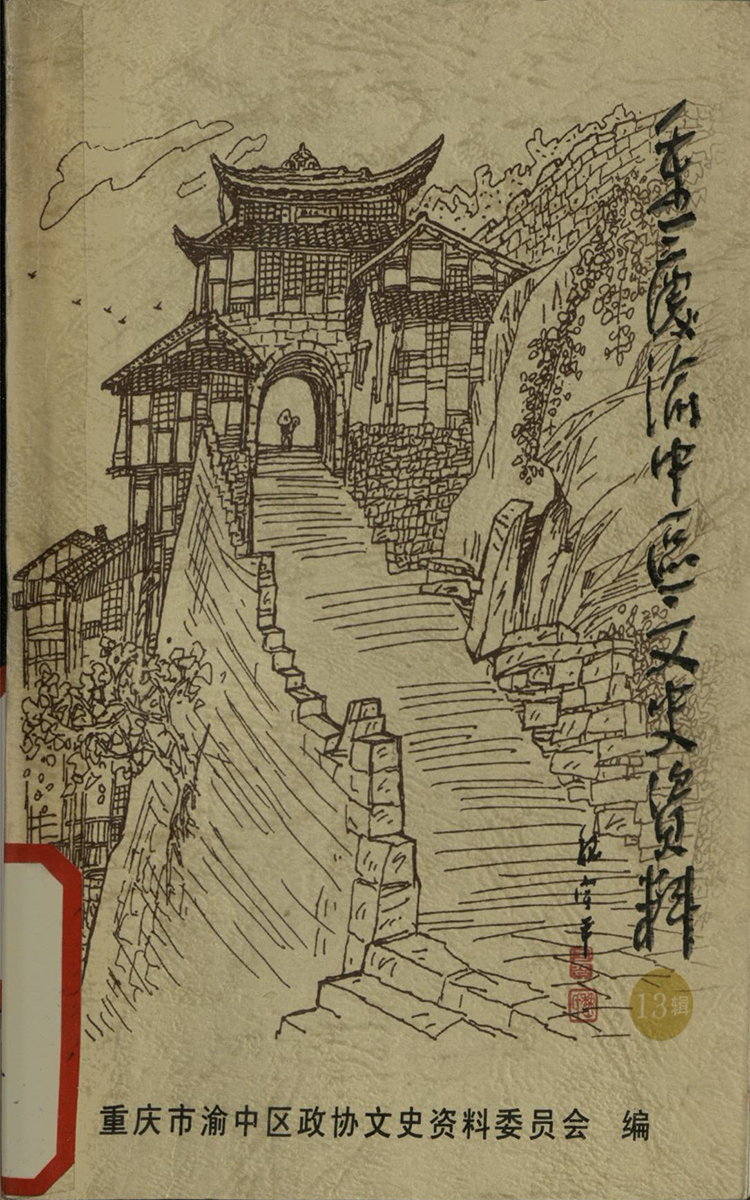 重慶渝中區文史資料
13辑
重庆市渝中区政协文史资料委员会 编